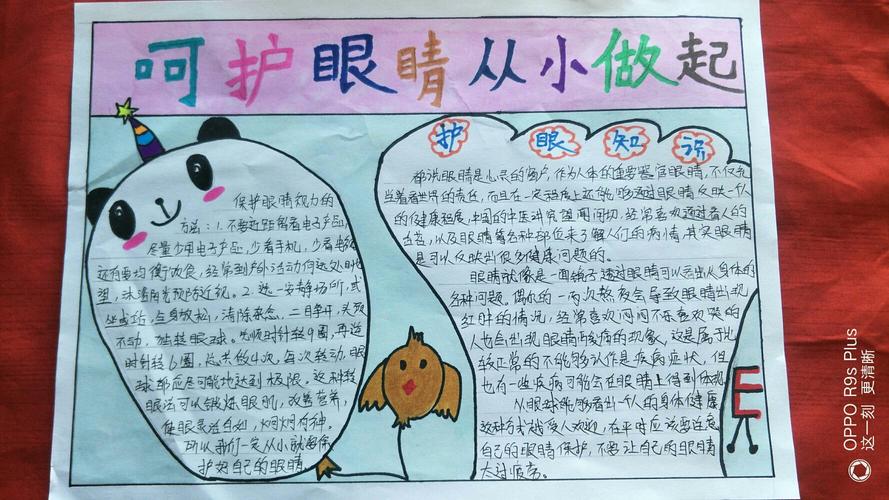 呵护眼睛从小做起
保护眼睛视力的
方法：1.不要近距离看电子产品，
尽量少用电子产品，少看手机，少看电视
还有要均衡饮食，经常到户外活动向远处眺
望，沐浴阳光预防近视。2.选一安静场所，或
坐或站，全身放松，清除杂念，二目睁开，头颈
不动，独转眼球。先顺时针转9圈，再逆
时针转6圈，总共做4次，每次转动，眼
球都应尽可能地达到极限。这种转
眼法可以锻炼眼肌，改善营养，
使眼灵活自如，炯炯有神。
所以我们一定从小就要保
护好自己的眼睛
护眼知识
都说眼睛是心灵的窗户，作为人体的重要器官眼睛，不仅充
当着看世界的责任，而且在一定程度上还能够透过眼睛反映一个人
的健康程度，中国的中医讲究望闻问切，经常喜欢通过看人的
舌苔，以及眼睛等各种部位来了解人们的病情，其实眼睛
是可以反映出很多健康问题的。
眼睛就像是一面镜子透过眼睛可以看出身体的
各种问题。偶尔的一两次熬夜会导致眼睛出现
红肿的情况，经常喜欢闷闷不乐喜欢哭的
人也会出现眼睛疼痛的现象，这是属于比
较正常的不能够认作是疾病症状，但
也有一些疾病可能会在眼睛上得到体现
从眼球能够看出一个人的身体健康
这种方式越受人欢迎，在平时应该要注意
自己的眼睛保护，不要让自己的眼睛
太过疲劳。
E
OPPO R9s Plus
这一刻 更清晰